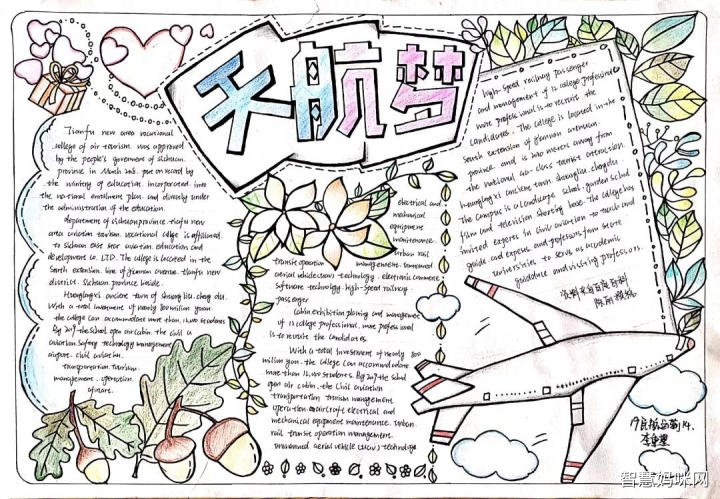 天航梦
Tianfu new area vocational
college of air tourism was approved
by the people's goverment of sichuan
province in March 2015. put on record by
the ministry of education. incorporated into
the national enrolment plan and directly under
the administration of the education
department of sichuan province. tianfu new
area aviation tourism vocational college is affiliated
to sichuan east star aviation education and
development co. LTD. The college is located in the
south extension line of jiannan avenue. tianfu new
district. sichuan province beside
Huanglongxi ancient town of shuangliu. cheng du.
With a total investment of nearly 800 million yuan.
the college can accommodate more than students
By 2019 the school open air cabin. the civil a
aviation safety technology management
airport. civil aviation.
transportation. tourism
management. operation
aircraft.
electrical and
mechanical
equipment
maintenance.
urban rail
transit operation management. unmanned
aerial vehicle (UAV) technology. electronic commerce
software technology. high-speed railway
passenger
Cabin exhibition planing and management
of 12 college professional. more professional
is to recruit the candidates.
With a total investment of nearly 800
million yuan. the college can accommodate
more than students. By 2019 the school
open air cabin. the civil aviation
transportation tourism management
operation aircraft electrical and
mechanical equipment maintenance. urban
rail transit operation management.
unmanned aerial vehicle (UAV) technology
high-speed railway passenger
and management of 12 college professional
more professional is to recruit the
candidates. The college is located in the
south extension of jiannan avenue.
province. and is two meters away from
the national class tourist attraction.
huanglong xi ancient town. shuangliu. chengdu
The campus is a landscape school. garden school
film and television shooting base. The college has
invited experts in civil aviation to teach and
guide and experts and professors from more
universities to serve as academic
guidance and visiting professors.
资料来自百度百科
智慧妈咪网